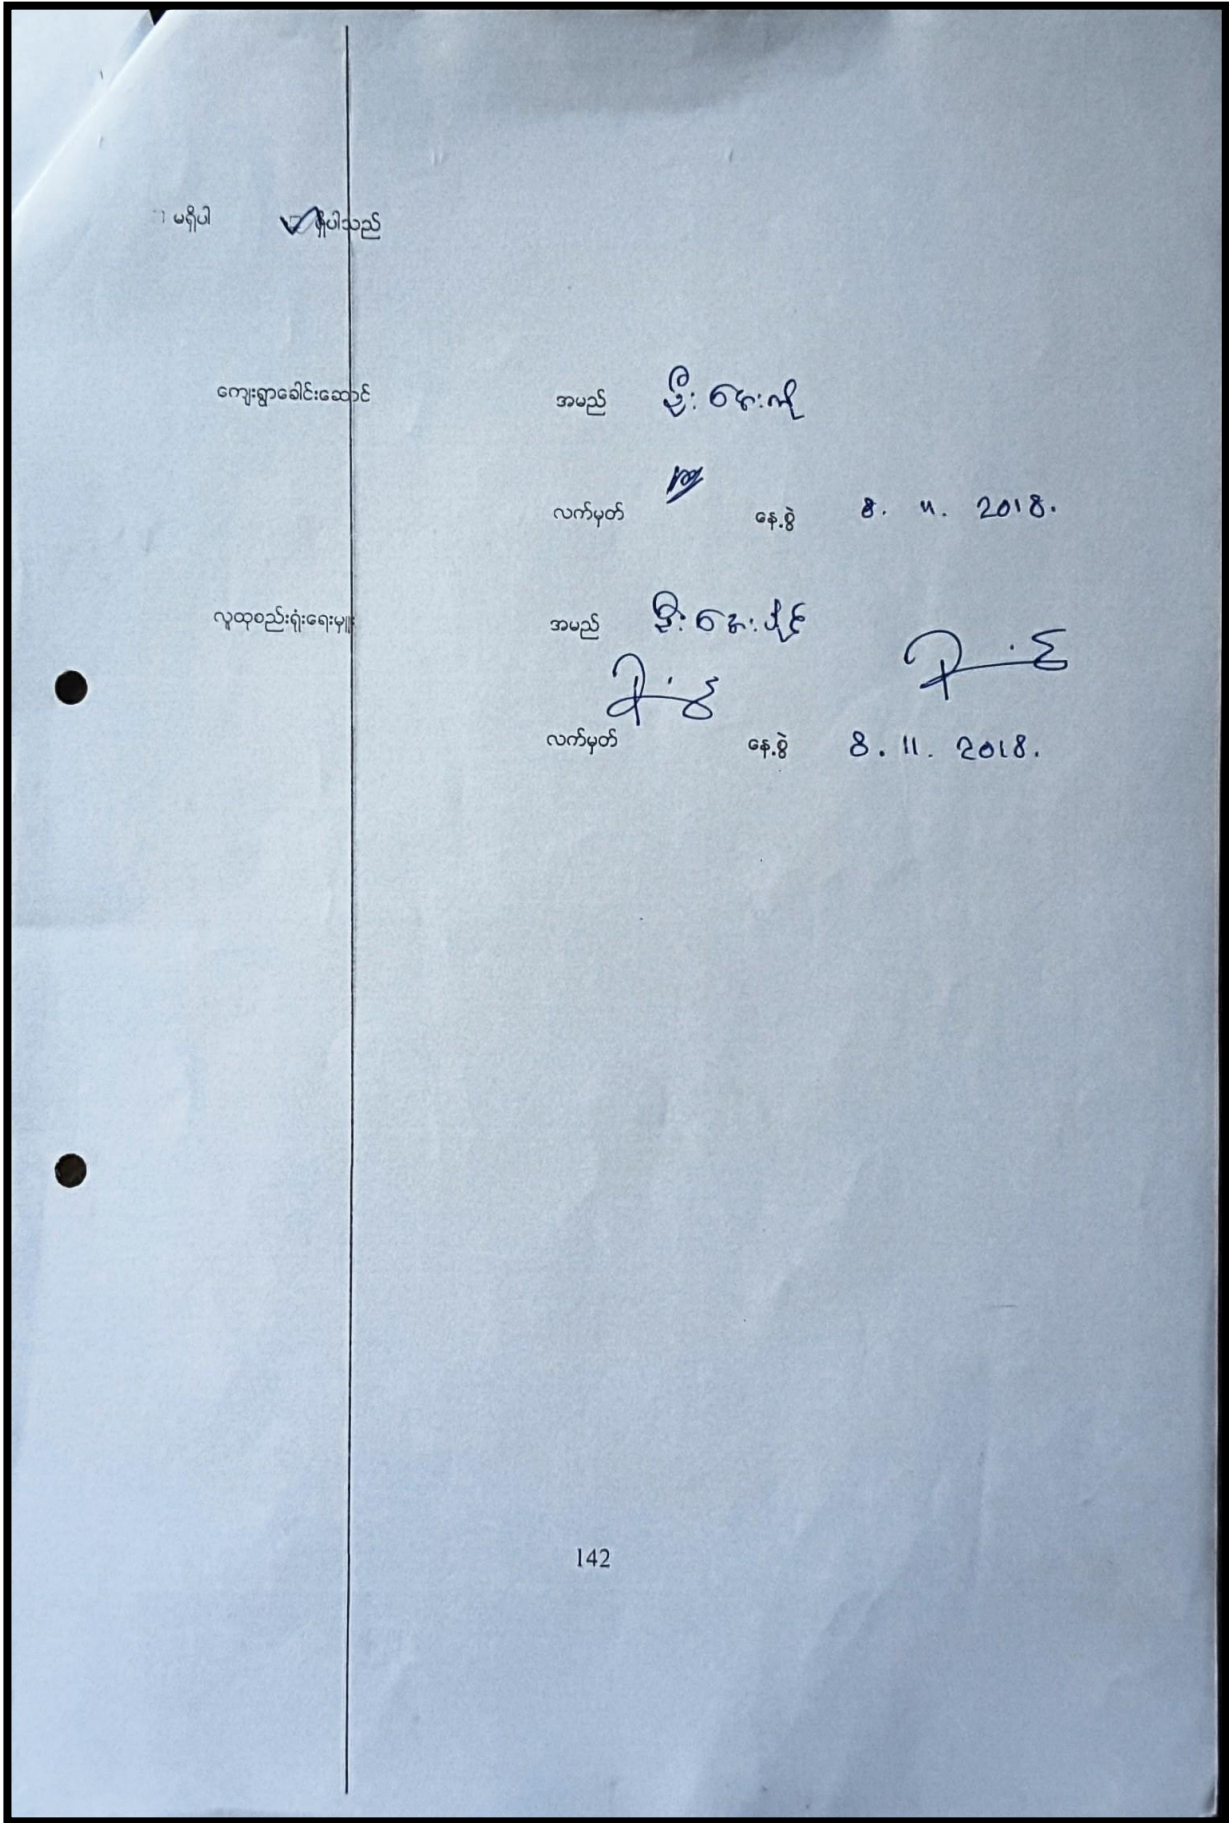 မရှိပါ ရှိပါသည်
ကျေးရွာခေါင်းဆောင် အမည် ဦး ဌေး
လက်မှတ် နေ့စွဲ 8. 11. 2018.
လူထုစည်းရုံးရေးမှူး အမည် ဦး
လက်မှတ် နေ့စွဲ 8. 11. 2018.
142